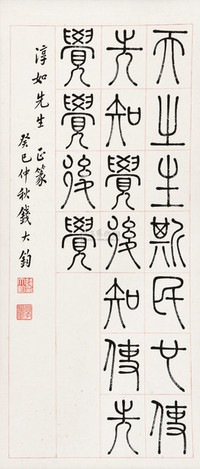 天之生斯民也使
先知覺後知使先
覺覺後覺
淳如先生 正篆
癸巳仲秋錢大鈞